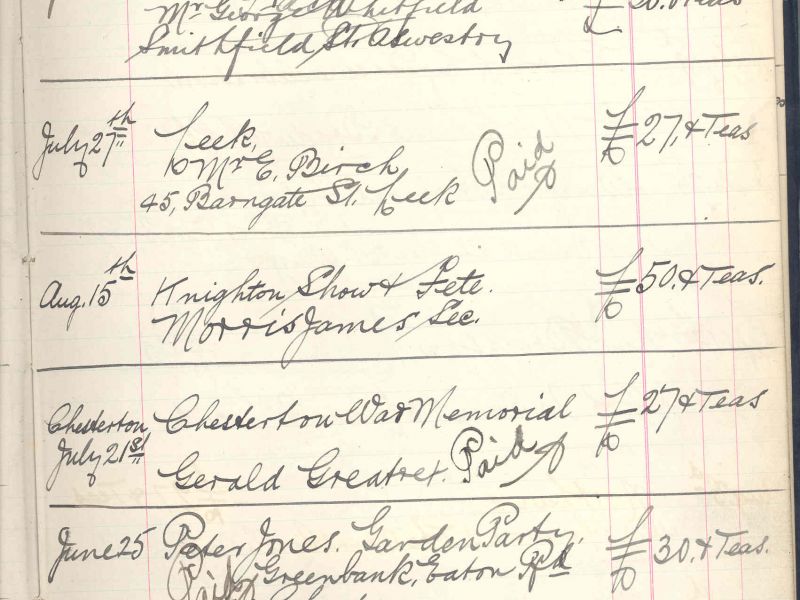 Mr George Whitfield
Smithfield St. Oswestry
July 27th Leek. £27. & Teas
Mr E. Birch Paid
45, Barngate St. Leek
Aug. 15th Knighton Show & Fete. £50. & Teas.
Morris James Sec.
Chesterton Chesterton War Memorial £27 & Teas
July 21st
Gerald Greatrex. Paid
June 25 Peter Jones. Garden Party. £30. & Teas.
Paid Greenbank, Eaton Rd